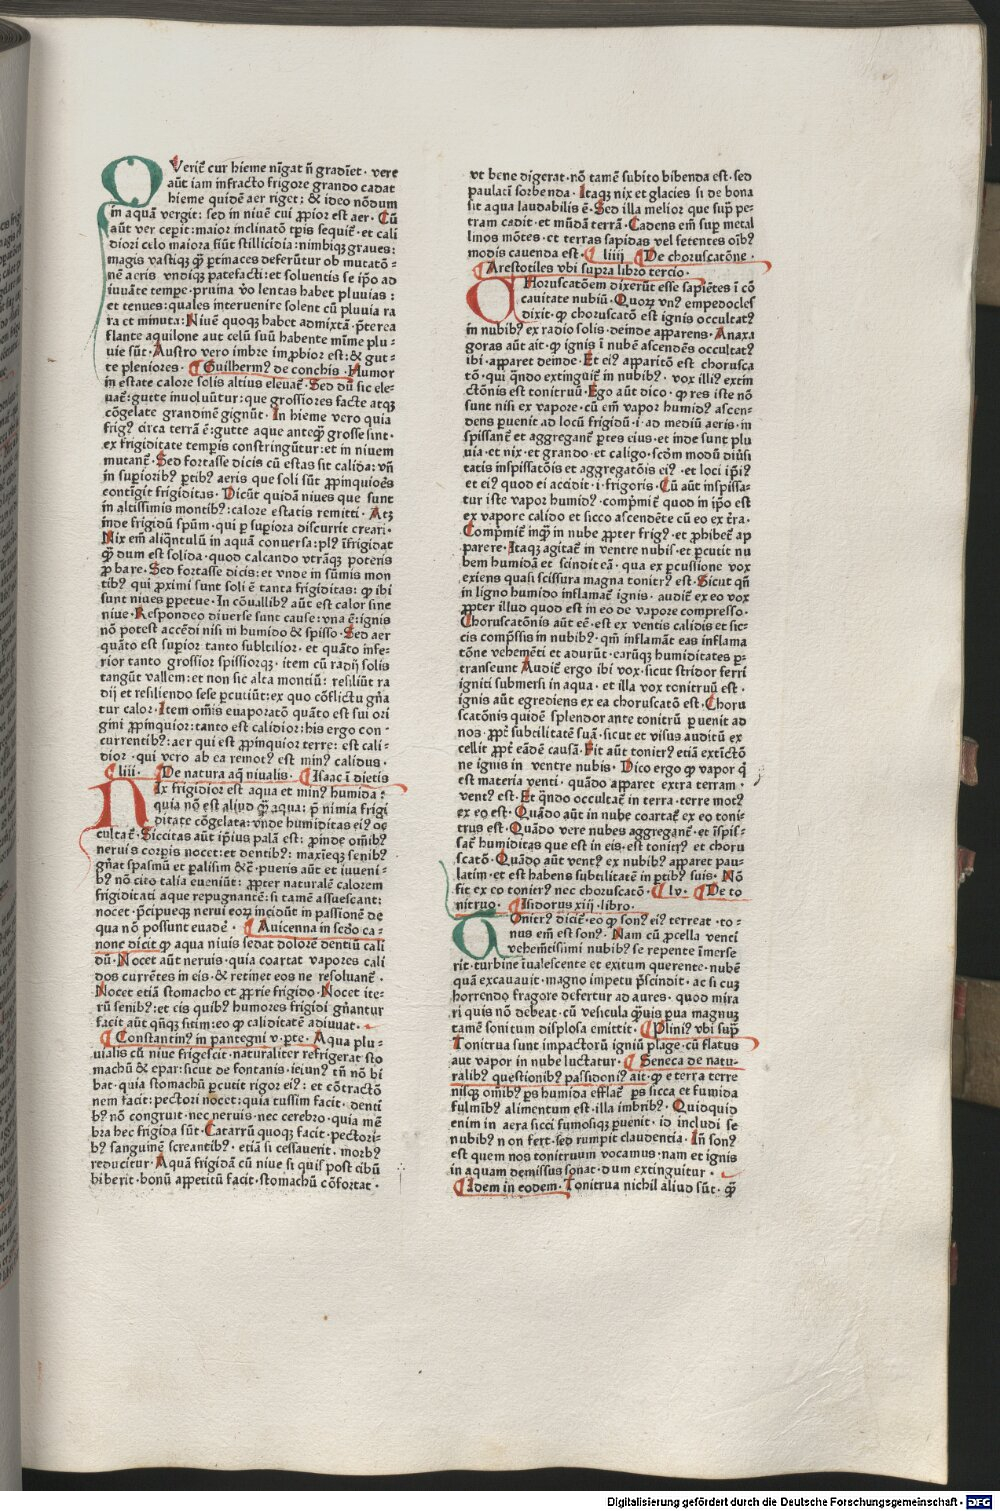 QVerit᷑ cur hieme nīgat n̄ grādīet · vere
aūt iam infracto frigore grando cadat
hieme quidē aer riget: & ideo nōdum
in aquā vergit: sed in niuē cui ꝓpior est aer · Cū
aūt ver cepit: maior inclinatō tꝑis sequit᷑ · et cali
diori celo maiora fiūt stillicidia: nimbiqȝ graues:
magis vastiqȝ ꝙ ꝑtinaces deferūtur ob mutatō⸗
nē aeris vndiqȝ patefacti: et soluentis se ip̄o ad
iuuāte tempe · pruina v̄o lentas habet pluuias:
et tenues: quales interuenire solent cū pluuia ra
ra et minuta: Niuē quoqȝ habet admixtā · p̄terea
flante aquilone aut celū suū habente mīme plu⸗
uie sūt · Austro vero imbre imꝓbior est: & gut⸗
te pleniores · ¶ Guilhermꝰ de conchis · Humor
in estate calore solis altius eleuat᷑ · Sed dū sic ele⸗
uat᷑: gutte inuoluūtur: que grossiores facte atqȝ
cōgelate grandinē gignūt · In hieme vero quia
frigꝰ circa terrā ē: gutte aque anteqȝ grosse sint ·
ex frigiditate temꝑis constringūtur: et in niuem
mutant᷑ · Sed fortasse dicis cū estas sit calida: vn̄
in suꝑioribꝰ ꝑtibꝰ aeris que soli sūt ꝓpinquioēs
contīgit frigiditas · Dicūt quidā niues que sunt
in altissimis montibꝰ: calore estatis remitti · Atqȝ
inde frigidū spūm · qui ꝑ supiora discurrit creari ·
Nix em̄ aliqn̄tulū in aquā conuersa: plꝰ īfrigidat
ꝙ dum est solida · quod calcando vtrāqȝ poteris
ꝓbare · Sed fortasse dicis: et vnde in sūmis mon
tibꝰ qui ꝓximi sunt soli ē tanta frigiditas: ꝙ ibi
sunt niues ꝑpetue · In cōuallibꝰ aūt est calor sine
niue · Respondeo diuerse sunt cause: vna ē: ignis
nō potest accēdi nisi in humido & spisso · Sed aer
quāto est suꝑior tanto subtilior · et quāto infe⸗
rior tanto grossior spissiorqȝ · item cū radij solis
tangūt vallem: et non sic alta montiū: resiliūt ra
dij et resiliendo sese ꝑcutiūt: ex quo cōflictu gn̄a
tur calor · Item om̄is euaporatō quāto est sui ori
gini ꝓpinquior: tanto est calidior: his ergo con⸗
currentibꝰ: aer qui est ꝓpinquior terre: est cali⸗
dior · qui vero ab ea remotꝰ est minꝰ calidus ·
¶ liii · ¶ De natura aq̄ niualis · ¶ Isaac ī dietis
NIx frigidior est aqua et minꝰ humida:
quia nō est aliud ꝙ aqua: p̄ nimia frigi
ditate cōgelata: vnde humiditas eiꝰ oc
cultat᷑ · Siccitas aūt ip̄ius palā est: ꝓinde om̄ibꝰ
neruis corꝑis nocet: et dentibꝰ: maxīeqȝ senibꝰ
gn̄at spasmū et ꝑalisim &c̄ · pueris aūt et iuueni⸗
bꝰ nō cito talia eueniūt: ꝓpter naturalē calorem
frigiditati aque repugnantē: si tamē assuescant:
nocet · p̄cipueqȝ nerui eoꝝ incidūt in passionē de
qua nō possunt euadē · ¶ Auicenna in scd̄o ca⸗
none dicit ꝙ aqua niuis sedat dolorē dentiū cali
dū · Nocet aūt neruis · quia coartat vapores cali
dos currētes in eis · & retinet eos ne resoluant᷑ ·
Nocet etiā stomacho et ꝓprie frigido · Nocet ite⸗
rū senibꝰ: et eis quibꝰ humores frigidi gn̄antur
facit aūt qn̄qȝ sitim: eo ꝙ caliditatē adiuuat ·
¶ Constantinꝰ in pantegni v · ꝑte · Aqua plu⸗
uialis cū niue frigescit · naturaliter refrigerat sto
machū & epar: sicut de fontanis · ieiunꝰ tn̄ nō bi
bat · quia stomachū ꝑcutit rigor eiꝰ: et cōtractō
nem facit: pectori nocet: quia tussim facit · denti
bꝰ nō congruit · nec neruis · nec cerebro · quia mē
bra hec frigida sūt · Catarrū quoqȝ facit · pectori⸗
bꝰ sanguinē screantibꝰ · etiā si cessauerit · morbꝰ
reducitur · Aquā frigidā cū niue si quis post cibū
biberit · bonū appetitū facit · stomachū cōfortat ·
vt bene digerat · nō tamē subito bibenda est · sed
paulatī sorbenda · Itaqȝ nix et glacies si de bona
sit aqua laudabilis ē · Sed illa melior que suꝑ pe⸗
tram cadit · et mūdā terrā · Cadens em̄ sup metal
linos mōtes · et terras sapidas vel fetentes oībꝰ
modis cauenda est · ¶ liiij ¶ De choruscatōne ·
¶ Arestotiles vbi supra libro tercio ·
CHoruscatōem dixerūt esse sapiētes ī cō
cauitate nubiū · Quoꝝ vnꝰ empedocles
dixit · ꝙ choruscatō est ignis occultatꝰ
in nubibꝰ ex radio solis · deinde apparens · Anaxa
goras aūt ait · ꝙ ignis ī nubē ascendēs occultatꝰ
ibi · apparet deinde · Et eiꝰ apparitō est chorusca
tō · qui qn̄do extinguit᷑ in nubibꝰ · vox illiꝰ extin
ctōnis est tonitruū · Ego aūt dico · ꝙ res iste nō
sunt nisi ex vapore · cū em̄ vapor humidꝰ ascen⸗
dens ꝑuenit ad locū frigidū · i · ad mediū aeris · in
spissant᷑ et aggregant᷑ ꝑtes eius · et inde sunt plu
uia · et nix · et grando · et caligo · scd̄m modū diu̓si
tatis inspissatōis et aggregatōis eiꝰ · et loci ip̄iꝰ
et eiꝰ quod ei accidit · i · frigoris · Cū aūt inspissa⸗
tur iste vapor humidꝰ · comprimit᷑ quod in ip̄o est
ex vapore calido et sicco ascendēte cū eo ex t̓ra ·
Comprimit᷑ inqȝ in nube ꝓpter frigꝰ · et ꝓhibet᷑ ap
parere · Itaqȝ agitat᷑ in ventre nubis · et ꝑcutit nu
bem humidā et scindit eā · qua ex ꝑcussione vox
exiens quasi scissura magna tonitrꝰ est · Sicut qn̄
in ligno humido inflamat᷑ ignis · audit᷑ ex eo vox
ꝓpter illud quod est in eo de vapore compresso ·
Choruscatōnis aūt eē · est ex ventis calidis et sic⸗
cis comp̄ssis in nubibꝰ · qm̄ inflamāt eas inflama
tōne vehemēti et adurūt · earūqȝ humiditates ꝑ⸗
transeunt Audit᷑ ergo ibi vox · sicut stridor ferri
igniti submersi in aqua · et illa vox tonitruū est ·
ignis aūt egrediens ex ea choruscatō est · Choru
scatōnis quidē splendor ante tonitrū ꝑuenit ad
nos · ꝓpt̓ subtilitatē suā · sicut et visus auditū ex
cellit ꝓpt̓ eādē causā · Fit aūt tonitrꝰ etiā extīctō
ne ignis in ventre nubis · Dico ergo ꝙ vapor q̇
est materia venti · quādo apparet extra terram ·
ventꝰ est · Et qn̄do occultat᷑ in terra · terre motꝰ
ex eo est · Quādo aūt in nube coartat᷑ ex eo toni⸗
trus est · Quādo vere nubes aggregant᷑ · et īspis⸗
sat᷑ humiditas que est in eis · est tonitrꝰ et choru
scatō · Quādo aūt ventꝰ ex nubibꝰ apparet pau⸗
latim · et est habens subtilitatē in ꝑtibꝰ suis · Nō
fit ex eo tonitrꝰ nec choruscatō · ¶ lv · ¶ De to
nitruo · ¶ Isidorus xiij · libro ·
TOnitrꝰ dicit᷑ · eo ꝙ sonꝰ eiꝰ terreat · to⸗
nus em̄ est sonꝰ · Nam cū ꝓcella venti
vehemētissimi nubibꝰ se repente īmerse
rit · turbine īualescente et exitum querente · nubē
quā excauauit · magno impetu p̄scindit · ac si cuȝ
horrendo fragore defertur ad aures · quod mira
ri quis nō debeat · cū vesicula ꝙuis ꝑua magnuȝ
tamē sonitum displosa emittit · ¶ Pliniꝰ vbi supͣ
Tonitrua sunt impactorū igniū plage · cū flatus
aut vapor in nube luctatur · ¶ Seneca de natu⸗
ralibꝰ questionibꝰ passidoniꝰ ait · ꝙ e terra terre
nisqȝ om̄ibꝰ ꝑs humida efflat᷑ ꝑs sicca et fumida
fulminibꝰ alimentum est · illa imbribꝰ · Quidquid
enim in aera sicci fumosiqȝ ꝑuenit · id includi se
nubibꝰ non fert · sed rumpit claudentia · In̄ sonꝰ
est quem nos tonitruum vocamus · nam et ignis
in aquam demissus sonat · dum extinguitur ·
¶ Idem in eodem · Tonitrua nichil aliud sūt · ꝙ
Digitalisierung gefördert durch die Deutsche Forschungsgemeinschaft - DFG